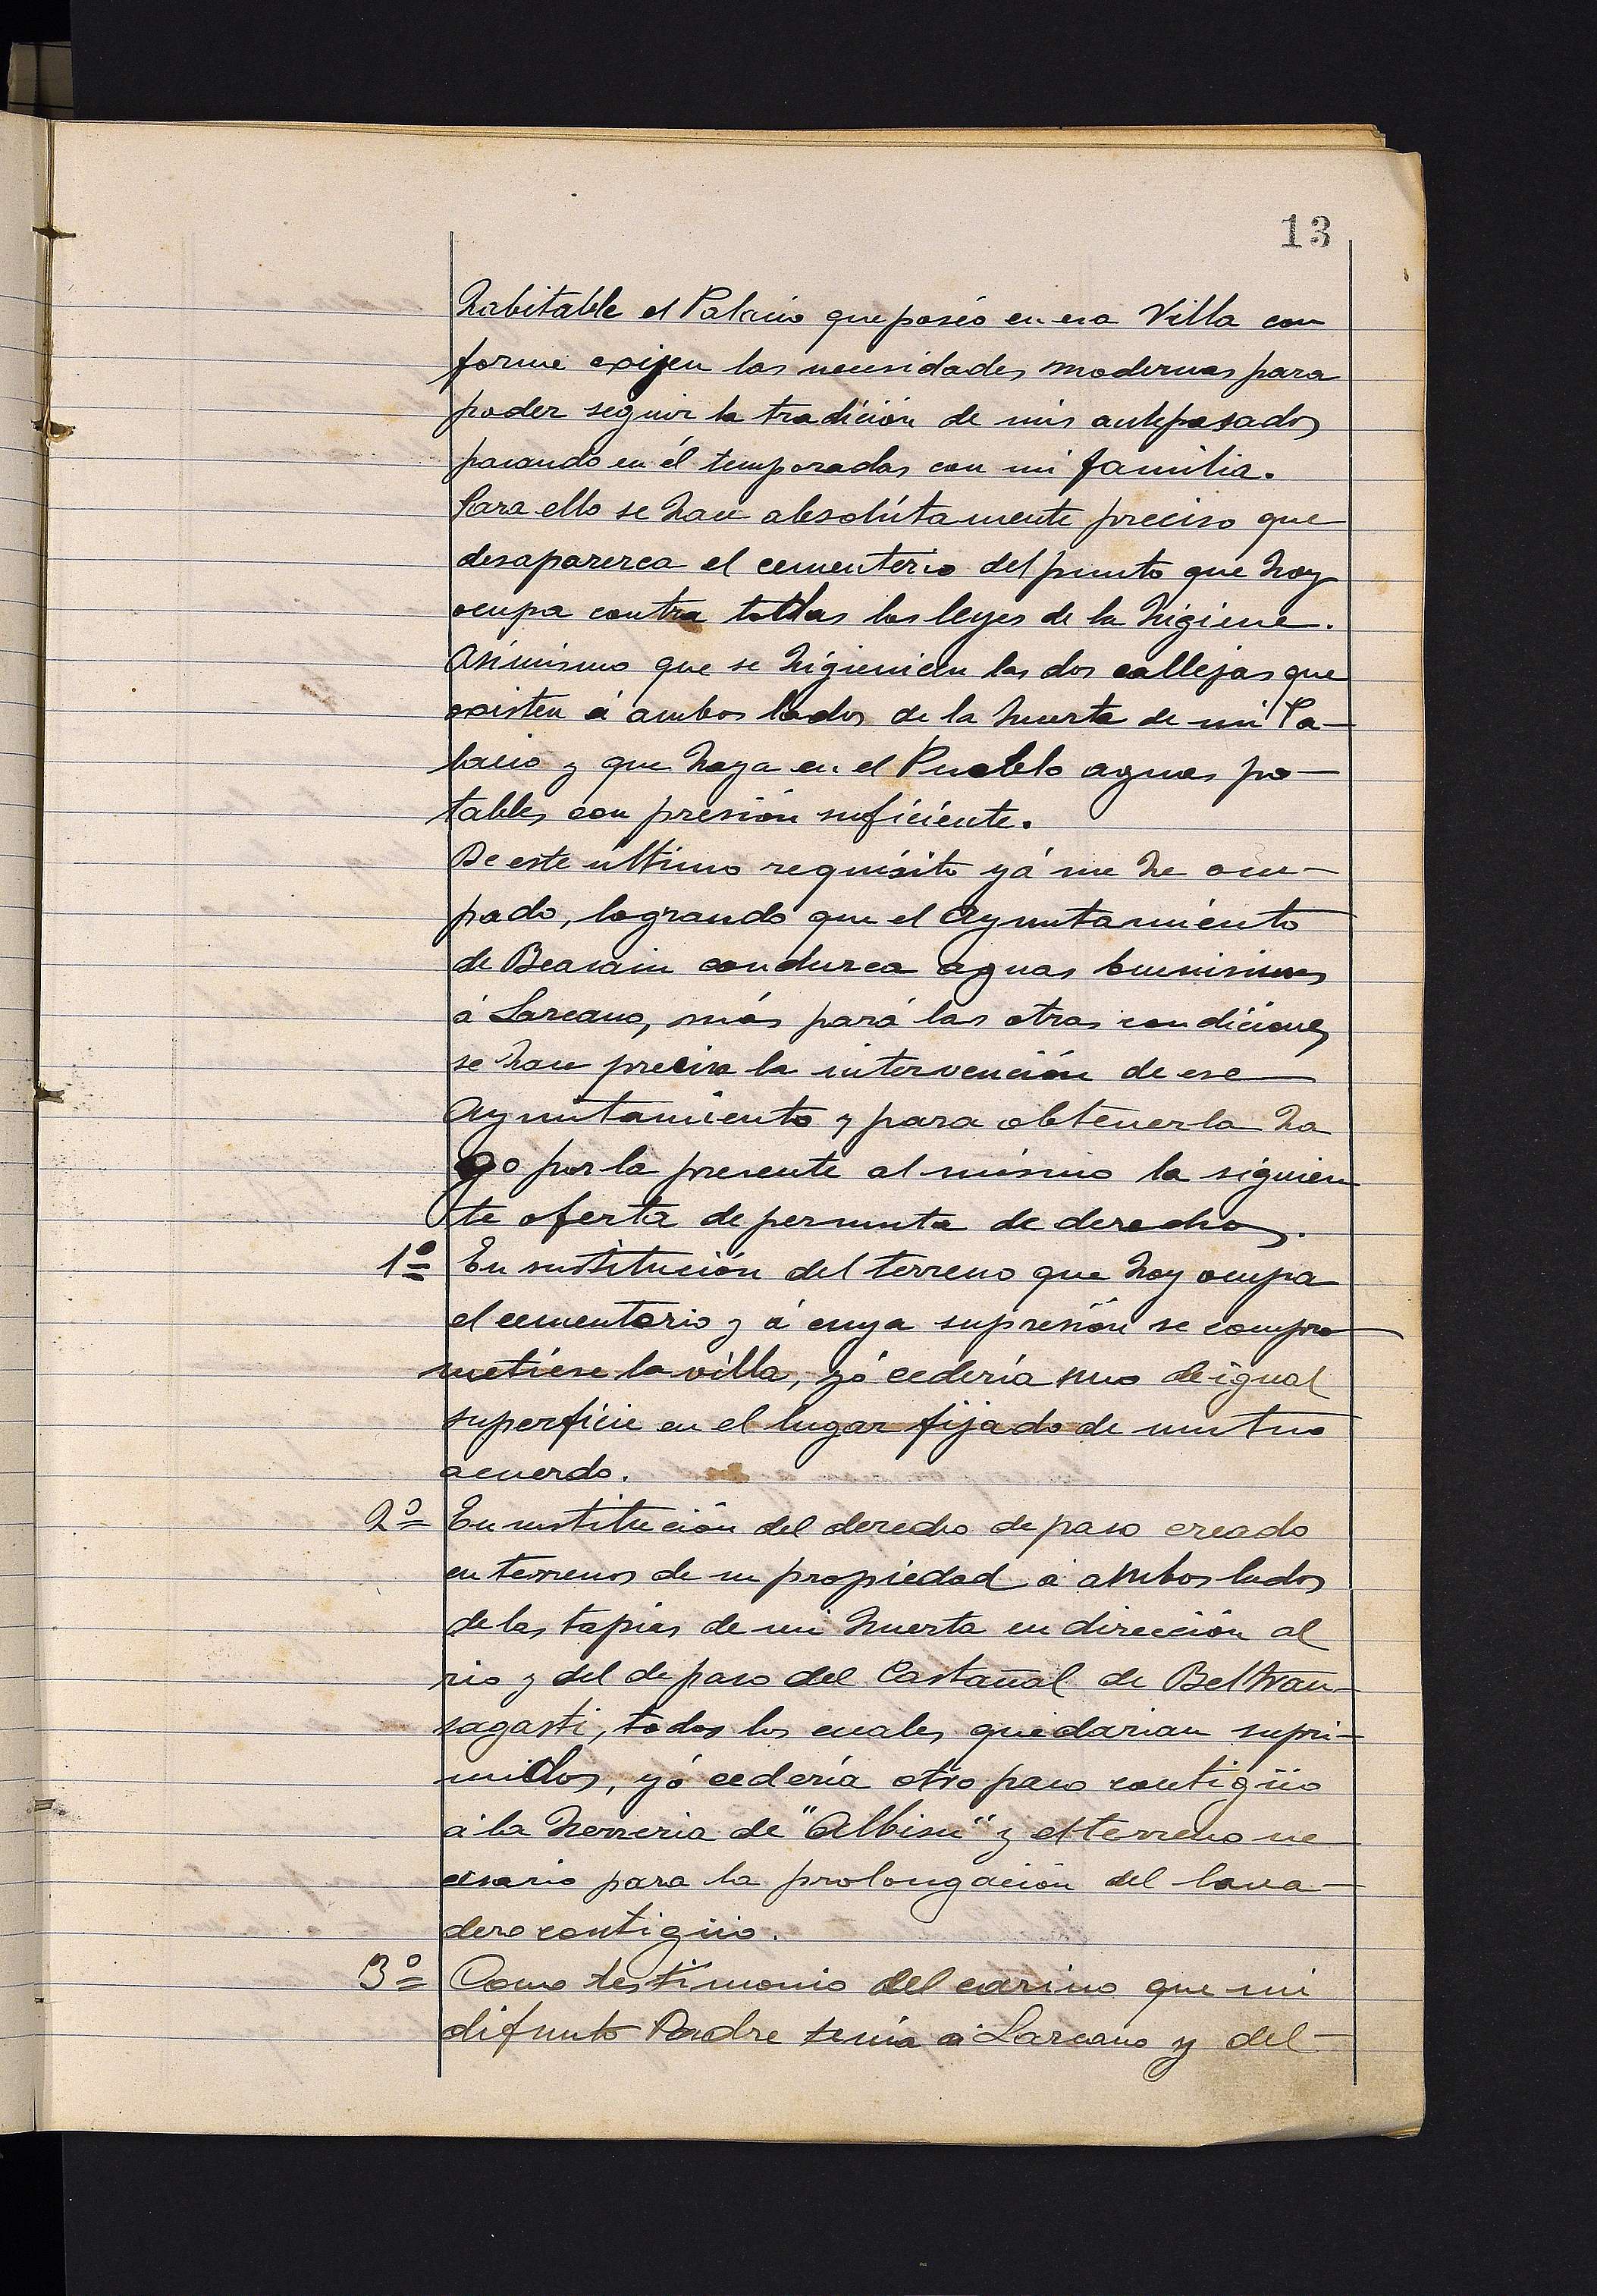 13
habitable el Palacio que poséo en esa Villa con
forme exijen las necesidades modernas para
poder seguir la tradición de mis antepasados
pasando en él temporadas con mi familia.
Para ello se hace absolútamente preciso que
desaparezca el cementerio del punto que hoy
ocupa contra todas las leyes de la higiene.
Asimismo que se higienicen las dos callejas que
existen á ambos lados de la huerta de mi Pa-
lacio y que haya en el Pueblo aguas po-
tables con presión suficiente.
De este último requisito yá me he ocu-
pado, logrando que el Ayuntamiento
de Beasain conduzca aguas buenisimas
á Lazcano, más pará las otras condiciones
se hace precisa la intervención de ese
Ayuntamiento y para obtenerla ha
go por la presente al mismo la siguien
te oferta de permuta de derechos.
1º En sustitución del terreno que hoy ocupa
el cementerio y á cuya supresión se compro
metiese la villa, yó cedería uno de igual
superficie en el lugar fijado de mutuo
acuerdo.
2º En sustitución del derecho de paso creado
en terrenos de su propiedad á ambos lados
de las tapias de mi huerta en dirección al
rio y del de paso del Castañal de Beltran-
sagasti, todos los cuales quedarian supri-
midos, yó cedería otro paso contigüo
á la herreria de "Albisu" y el terreno ne
cesario para la prolongación del lava-
dero contigüo.
3º Como testimonio del carino que mi
difunto Padre tenía á Lazcano y del